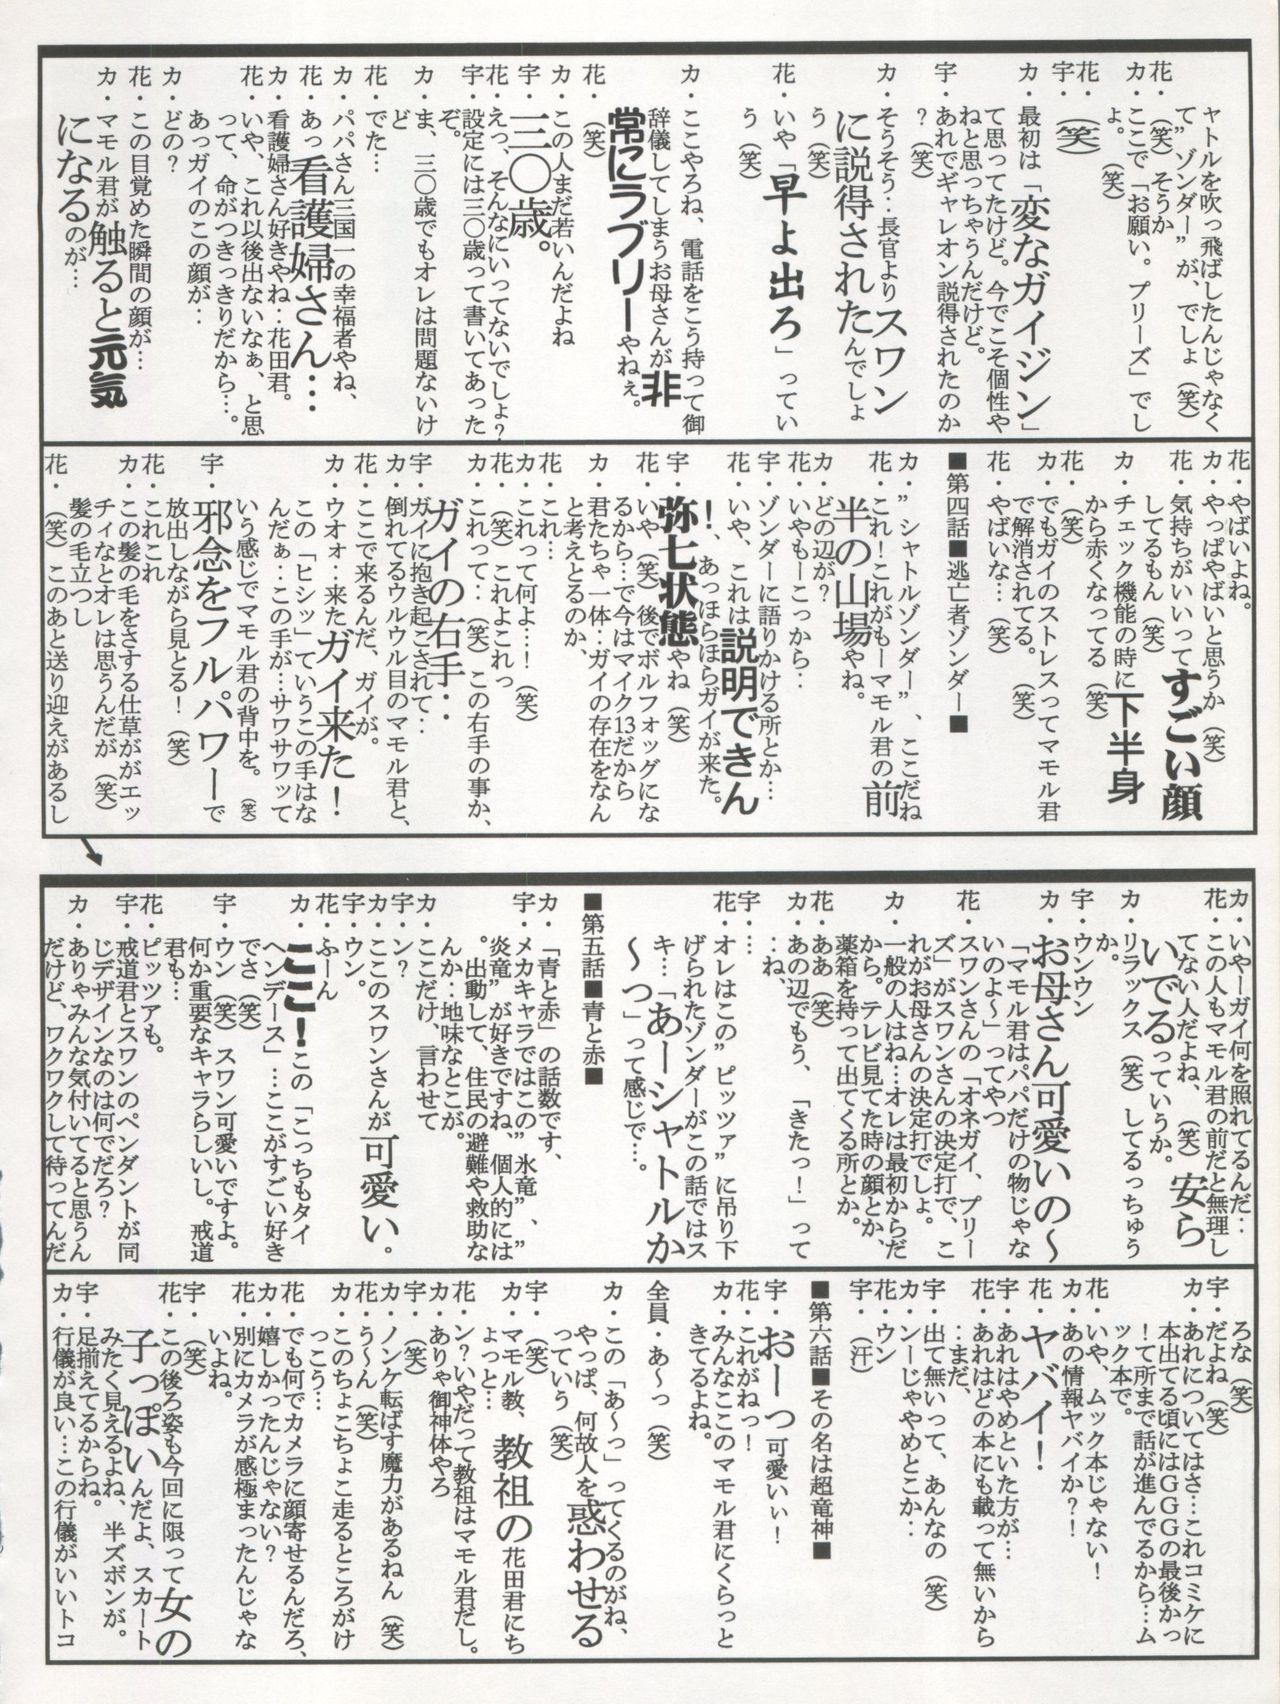 ャトルを吹っ飛ばしたんじゃなく
て”ゾンダー”が、でしょ（笑）
花・（笑）そうか
カ・ここで「お願い。プリーズ」でし
ょ。（笑）
花・
宇・（笑）
カ・最初は「変なガイジン」
て思ってたけど。今でこそ個性や
ねと思っちゃうんだけど。
宇・あれでギャレオン説得されたのか
？
カ・そうそう‥長官よりスワン
に説得されたんでしょ
う（笑）
花・いや「早よ出ろ」ってい
う（笑）
カ・ここやろね、電話をこう持って御
辞儀してしまうお母さんが非
常にラブリーやねぇ。
花・（笑）
カ・この人まだ若いんだよね
宇・三〇歳。
花・えっ、そんなにいってないでしょ？
宇・設定には三〇歳って書いてあった
ぞ。
カ・ま、三〇歳でもオレは問題ないけ
ど
花・でた…
カ・パパさん三国一の幸福者やね、
花・あっ看護婦さん…
カ・看護婦さん好きやね‥花田君。
花・いや、これ以後出ないなぁ、と思
って、命がつきっきりだから…。
あっガイのこの顔が‥
カ・どの？
花・この目覚めた瞬間の顔が…
カ・マモル君が触ると元気
になるのが…
花・やばいよね。
カ・やっぱやばいと思うか（笑）
花・気持ちがいいってすごい顔
してるもん（笑）
カ・チェック機能の時に下半身
から赤くなってる（笑）
花・（笑）
カ・でもガイのストレスってマモル君
で解消されてる。（笑）
花・やばいな…（笑）
■第四話■逃亡者ゾンダー■
カ・”シャトルゾンダー”、ここだね
花・これ！これがもーマモル君の前
半の山場やね。
カ・どの辺が？
花・いやもーこっから‥
宇・ゾンダーに語りかける所とか…
花・いや、これは説明できん
！、あっほらほらガイが来た。
宇・弥七状態やね（笑）
花・いや（笑）後でボルフォッグにな
るから…で今はマイク13だから
カ・君たちゃ一体‥ガイの存在をなん
と考えとるのか、
花・これ…
カ・これって何よ…！（笑）
花・（笑）これよこれっ
カ・これって‥（笑）この右手の事か、
ガイの右手‥
宇・ガイに抱き起こされて‥
カ・倒れてるウルウル目のマモル君と、
花・ここで来るんだ、ガイが。
カ・ウオォ‥来たガイ来た！
この「ヒシッ」ていうこの手はな
んだぁ‥この手が…サワサワッて
いう感じでマモル君の背中を。（笑）
宇・邪念をフルパワーで
放出しながら見とる！（笑）
花・これこれ
カ・この髪の毛をさする仕草ががエッ
チィなとオレは思うんだが（笑）
髪の毛立つし
花・（笑）このあと送り迎えがあるし
カ・いやーガイ何を照れてるんだ‥
花・この人もマモル君の前だと無理し
てない人だよね、（笑）安ら
いでるっていうか。
カ・リラックス（笑）してるっちゅう
か。
宇・ウンウン
カ・お母さん可愛いの〜
「マモル君はパパだけの物じゃな
いのよ〜」ってやつ
花・スワンさんの「オネガイ、プリー
ズ」がスワンさんの決定打で、こ
れがお母さんの決定打でしょ。
カ・一般の人はね…オレは最初からだ
から。テレビ見てた時の顔とか、
薬箱を持って出てくる所とか。
花・ああ（笑）
カ・あの辺でもう、「きたっ！」って
‥ね、
宇・…
花・オレはこの”ピッツァ”に吊り下
げられたゾンダーがこの話ではス
キ…「あーシャトルか
〜つ」って感じで…。
■第五話■青と赤■
カ・「青と赤」の話数です、
宇・メカキャラではこの”氷竜”、”
炎竜”が好きですね、個人的には
。出動して、住民の避難や救助な
んか‥地味なとこが。
カ・ここだけ、言わせて
宇・ン？
カ・ここのスワンさんが可愛い。
宇・ウン。
花・ふーん
カ・ここ！この「こっちもタイ
ヘンデース」…ここがすごい好き
でさ（笑）
宇・ウン（笑）スワン可愛いですよ。
何か重要なキャラらしいし。戒道
君も…
花・ピッツアも。
宇・戒道君とスワンのペンダントが同
じデザインなのは何でだろ？
カ・ありゃみんな気付いてると思うん
だけど、ワクワクして待ってんだ
ろな（笑）
宇・だよね（笑）
カ・あれについてはさ…これコミケに
本出てる頃にはＧＧＧの最後かっ
！て所まで話が進んでるから…ム
ック本で。
花・いや、ムック本じゃない！
カ・あの情報ヤバイか？！
花・ヤバイ！
宇・あれはやめといた方が…
花・あれはどの本にも載って無いから
‥まだ、
宇・出て無いって、あんなの（笑）
カ・ンーじゃやめとこか‥
花・ウン
宇・（汗）
■第六話■その名は超竜神■
宇・おーっ可愛いぃ！
花・これがねっ！
カ・みんなここのマモル君にくらっと
きてるよね。
全員・あ〜っ（笑）
カ・この「あ〜っ」ってくるのがね、
やっぱ、何故人を惑わせる
っていう（笑）
宇・（笑）
カ・マモル教、教祖の花田君にち
ょっと…
花・ン？いやだって教祖はマモル君だし。
カ・ありゃ御神体やろ
宇・（笑）
カ・ノンケ転ばす魔力があるねん（笑）
花・う〜ん（笑）
カ・このちょこちょこ走るところがけ
っこう…
花・でも何でカメラに顔寄せるんだろ、
カ・嬉しかったんじゃない？
花・別にカメラが感極まったんじゃな
いよね。
宇・（笑）
花・この後ろ姿も今回に限って女の
子っぽいんだよ、スカート
みたく見えるよね、半ズボンが。
宇・足揃えてるからね。
カ・行儀が良い…この行儀がいいトコ